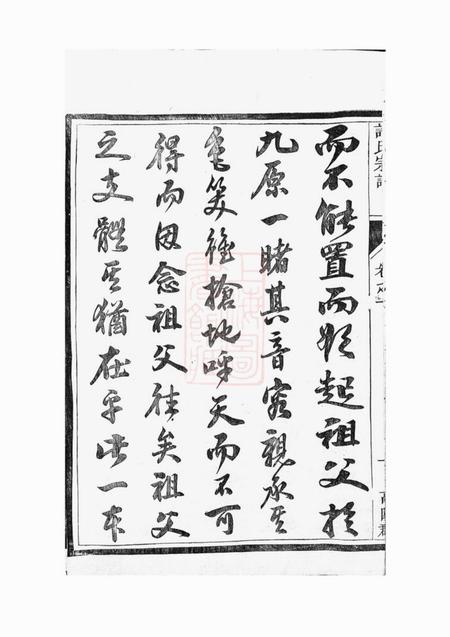 氏宗譜
而不能置而欲起祖父於
九原一睹其音容親承其
色笑雖搶地呼天而不可
得而因念祖父往矣祖父
之支體其猶在乎此一本